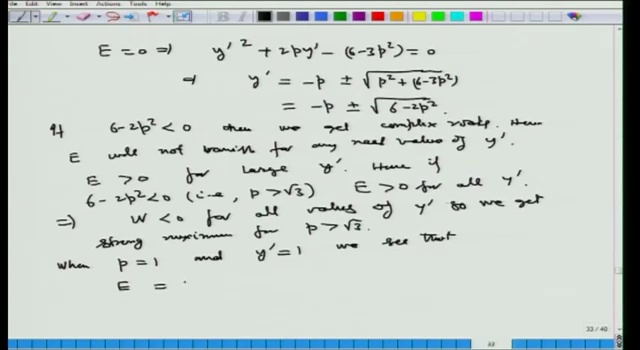 View Insert Actions Tools Help
E = 0 ⇒ y'² + 2py' − (6−3p²) = 0
⇒ y' = −p ± √(p² + (6−3p²))
= −p ± √(6−2p²)
If 6−2p² < 0 then we get complex roots. Hence
E will not vanish for any real value of y'.
E > 0 for large y'. Hence if
6−2p² < 0 (i.e., p > √3) E > 0 for all y'.
⇒ W < 0 for all values of y' so we get
strong maximum for p > √3.
When p = 1 and y' = 1 we see that
E =
33 / 40
33